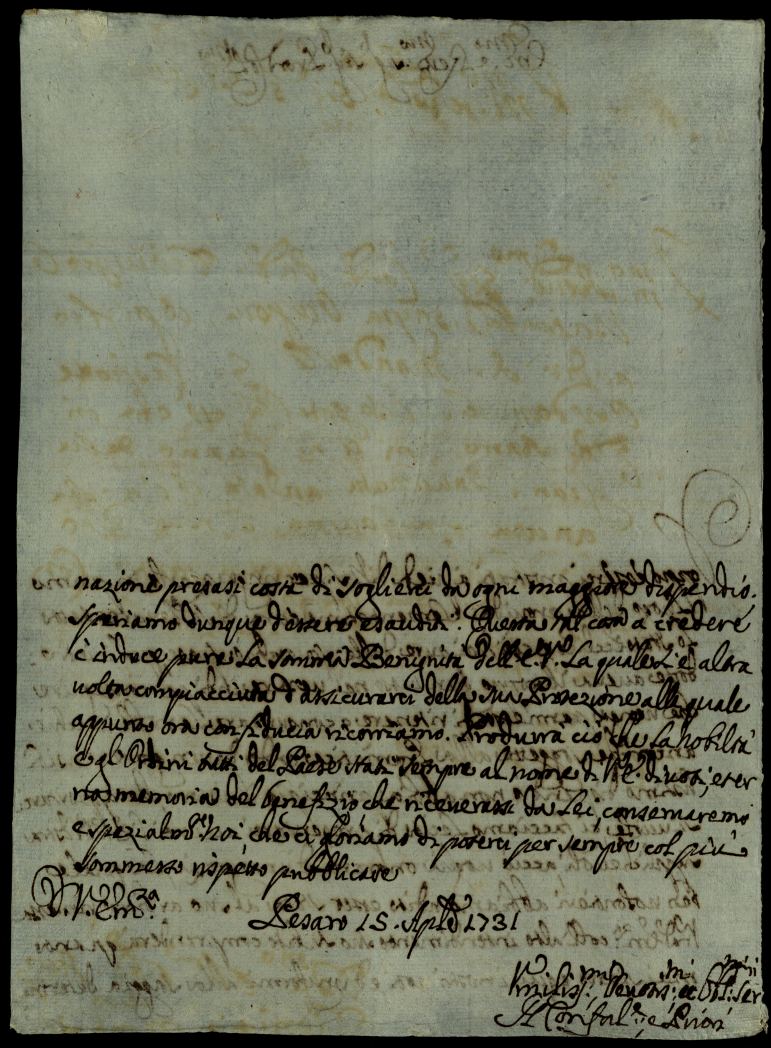 nazione presasi costì di toglierci da ogni maggiore dispendio.
speriamo dunque d'essere esauditi. Questa tal cosa a credere
c'induce pure la somma Benignità dell'E.V. La quale s'è altra
volta compiacciuta d'assicurarci della sua Protezione alla quale
appunto ora con fiducia ricorriamo. Produrrà ciò che la Nobiltà
e gl'Ordini tutti del Paese stati sempre al nome di V.E. divoti, eter
na memoria del benefizio che riceverassi da Lei, conservaremo
e spezialm.te Noi che ci gloriamo di poterci per sempre col più
sommesso rispetto pubblicare
D. V. Em.za
Pesaro 15. Aple 1731
Umiliss.mi Devotis.mi et Obb.mi Ser
Il Confal.re e Priori